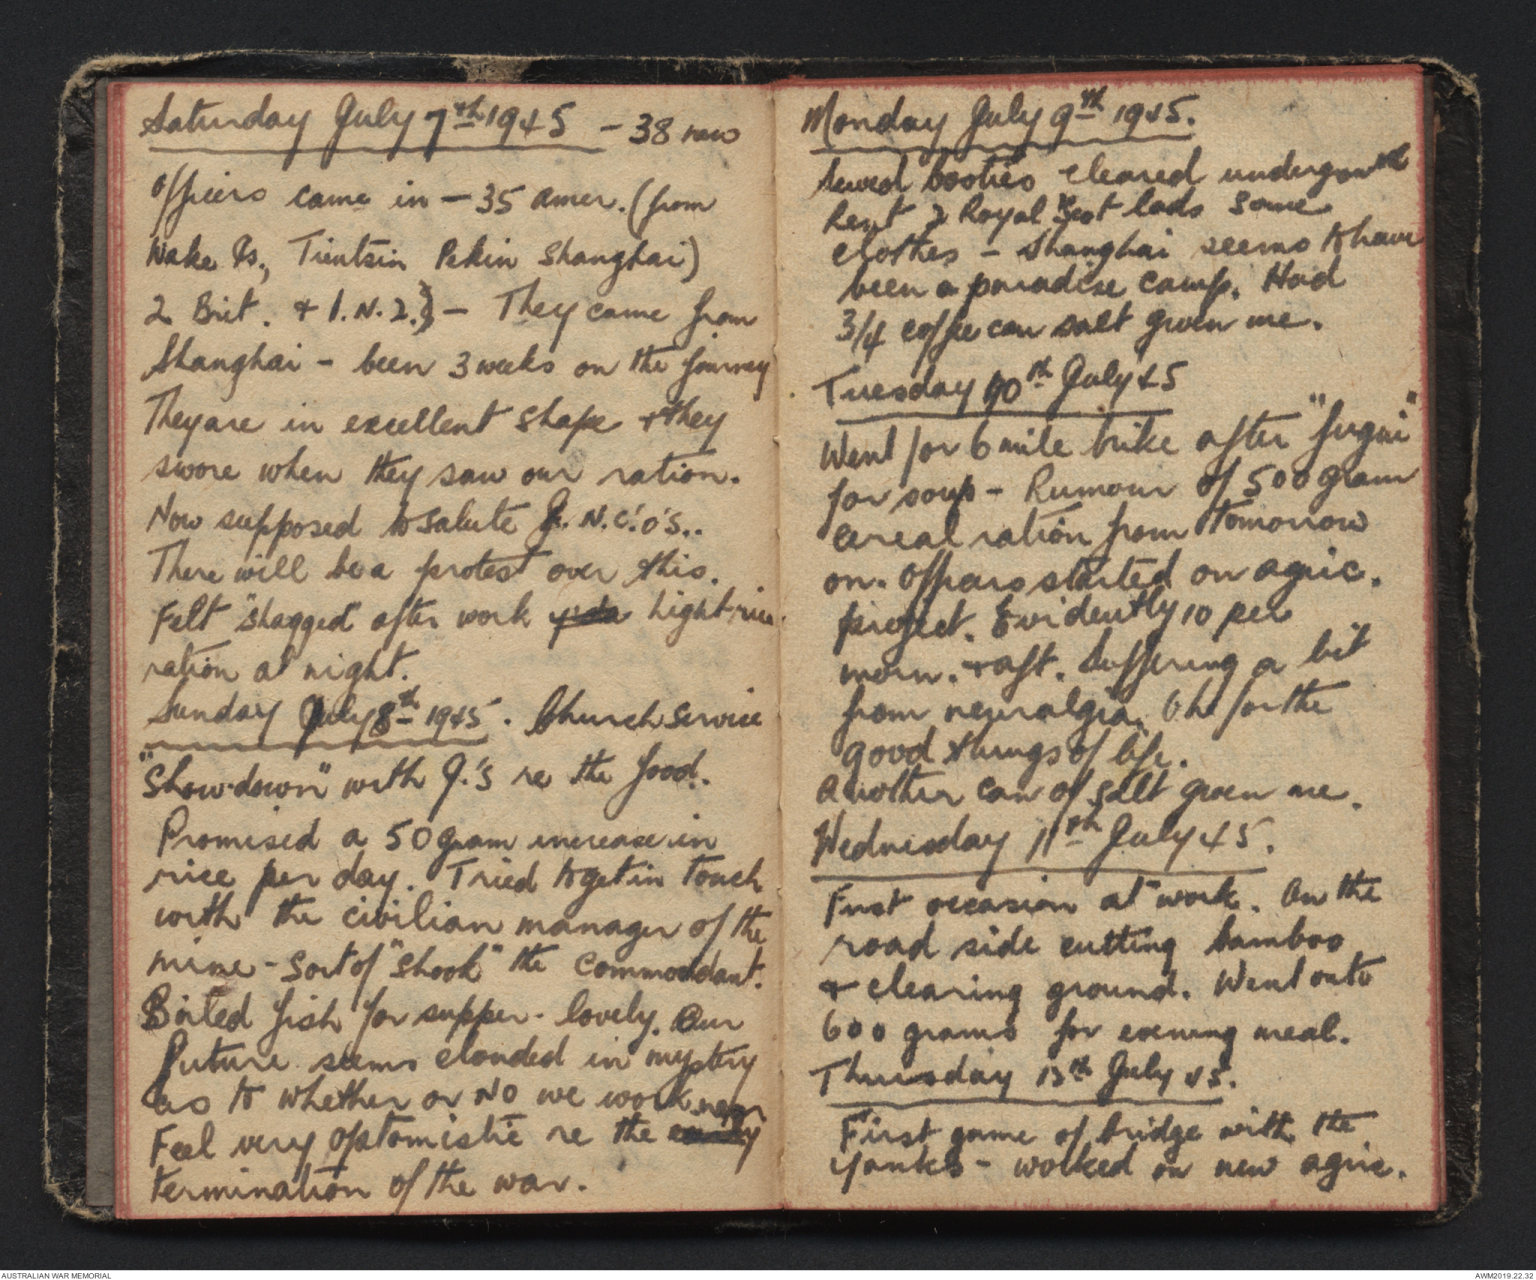 Saturday July 7th 1945 - 38 new
officers came in - 35 Amer. (from
Wake Is., Tientsin Pekin Shanghai)
2 Brit. + 1. N.Z.} - They came from
Shanghai - been 3 weeks on the journey
They are in excellent shape + they
swore when they saw our ration.
Now supposed to salute J. N.C.'O'S..
There will be a protest over this.
Felt "shagged" after work Light rice
ration at night.
Sunday July 8th 1945. Church Service
"Show-down" with J.'s re the food.
Promised a 50 gram increase in
rice per day. Tried to get in touch
with the civilian manager of the
mine - sort of "shook" the commandant.
Boiled fish for supper - lovely. Our
future seems clouded in mystery
as to whether or NO we work.
Feel very optomistic re the near
termination of the war.
Monday July 9th 1945.
Sewed booties cleared undergrowth
Lent 2 Royal Scot lads some
clothes - Shanghai seems to have
been a paradise camp. Had
3/4 coffee can salt given me.
Tuesday 10th July 45
Went for 6 mile hike after "fugui"
for soup - Rumour of 500 gram
cereal ration from tomorrow
on. Officers started on agric.
project. Evidently 10 per
morn. + aft. Suffering a bit
from neuralgia. Oh for the
good things of life.
Another can of salt given me.
Wednesday 11th July 45.
First occasion at work. On the
road side cutting bamboo
+ clearing ground. Went onto
600 grams for evening meal.
Thursday July 45.
First game of bridge with the
Yanks - worked on new agric.
AUSTRALIAN WAR MEMORIAL
AWM2019.22.32